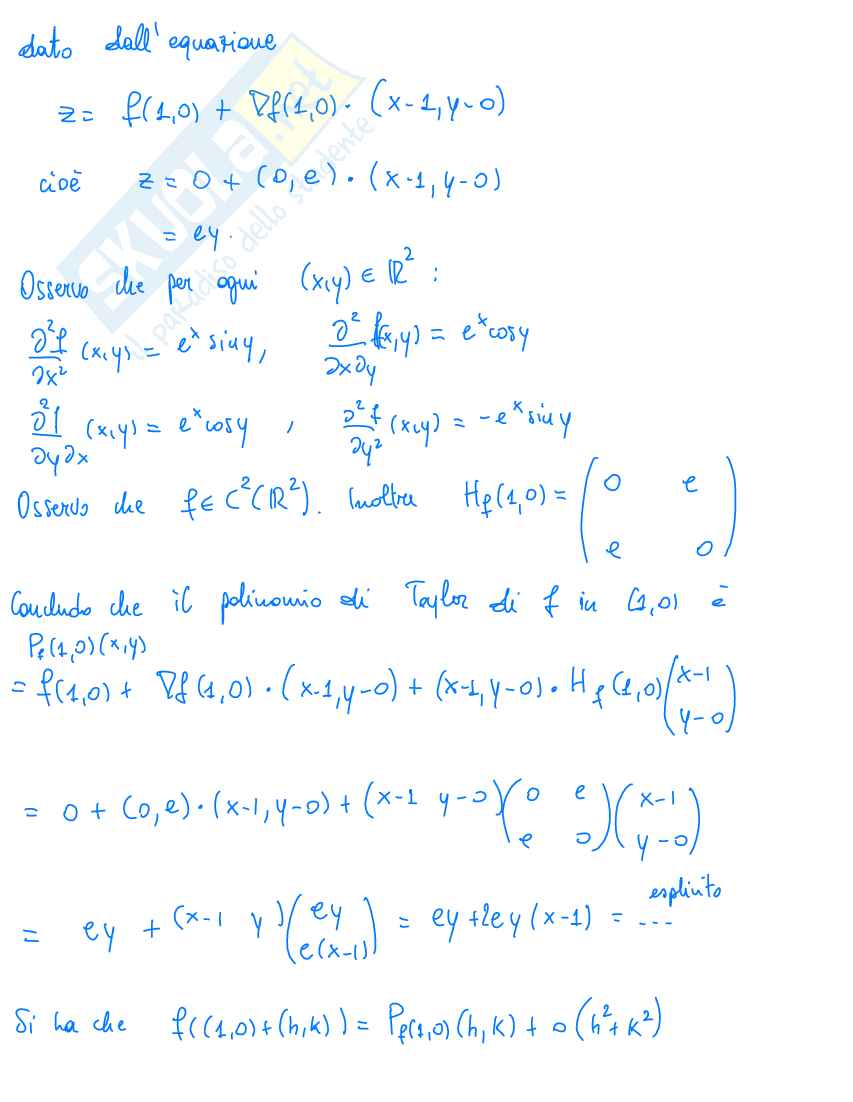 dato dall'equazione
z = f(1,0) + ∇f(1,0)·(x-1,y-0)
cioè z = 0 + (0,e)·(x-1,y-0)
= ey.
Osservo che per ogni (x,y) ∈ ℝ² :
∂²f/∂x² (x,y) = eˣ sin y, ∂²/∂x∂y f(x,y) = eˣ cos y
∂²f/∂y∂x (x,y) = eˣ cos y , ∂²f/∂y² (x,y) = -eˣ sin y
Osservo che f ∈ C²(ℝ²). Inoltre H_f(1,0) = (0 e ; e 0)
Concludo che il polinomio di Taylor di f in (1,0) è
P_f(1,0)(x,y)
= f(1,0) + ∇f(1,0)·(x-1,y-0) + (x-1,y-0)·H_f(1,0)(x-1 ; y-0)
= 0 + (0,e)·(x-1,y-0) + (x-1 y-0)(0 e ; e 0)(x-1 ; y-0)
= ey + (x-1 y)(ey ; e(x-1)) = ey+2ey(x-1) = esplicito ...
Si ha che f((1,0)+(h,k)) = P_f(1,0)(h,k) + o(h²+k²)
SKUOLA.net
il paradiso dello studente